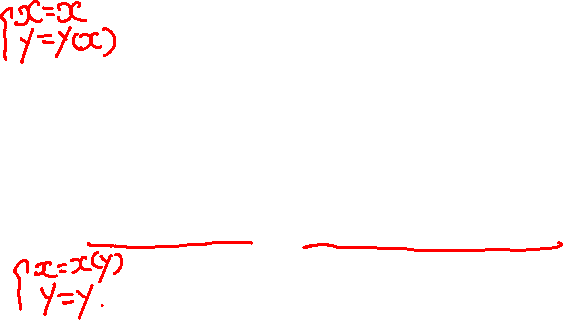 x=x
y=y(x)
x=x(y)
y=y.